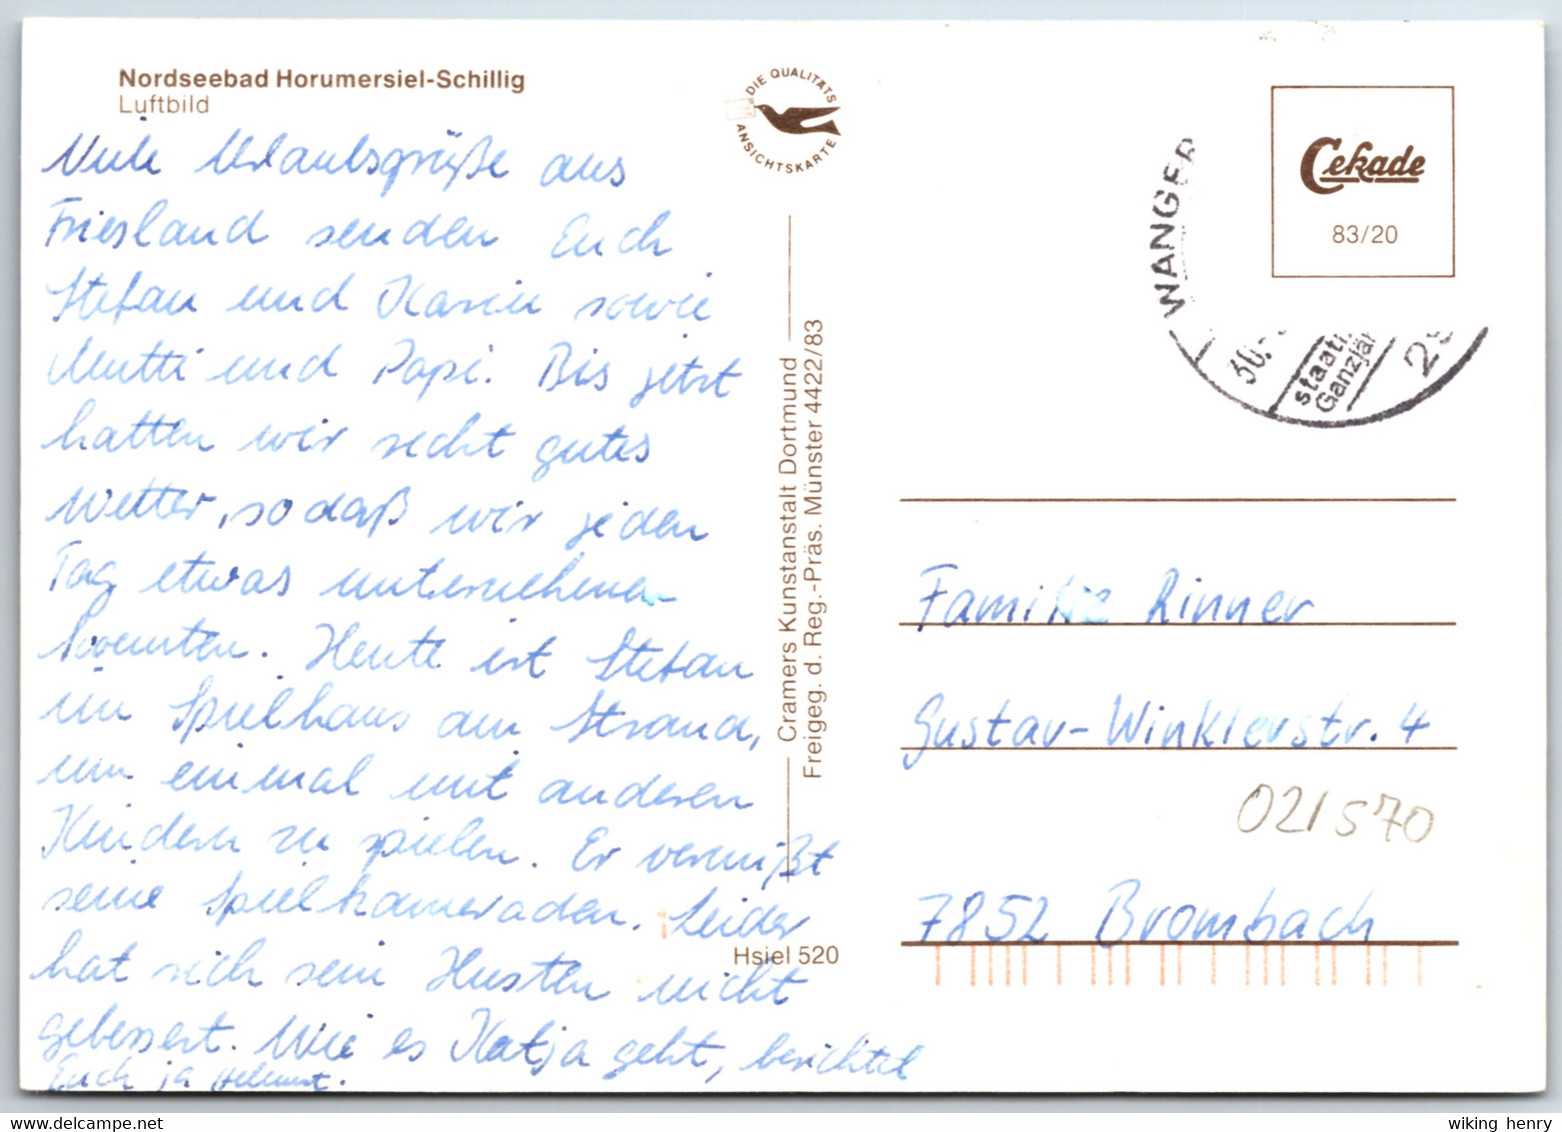 Nordseebad Horumersiel-Schillig
Luftbild
Viele Urlaubsgrüße aus
Friesland senden Euch
Stefan und Karin sowie
Mutti und Papi. Bis jetzt
hatten wir recht gutes
Wetter, so daß wir jeden
Tag etwas unternehmen
konnten. Heute ist Stefan
im Spielhaus am Strand,
um einmal mit anderen
Kindern zu spielen. Er vermißt
seine Spielkameraden. Leider
hat sich sein Husten nicht
gebessert. Wie es Katja geht, berichtet
Euch ja Helmut.
DIE QUALITÄTS
ANSICHTSKARTE
Cramers Kunstanstalt Dortmund
Freigeg. d. Reg.-Präs. Münster 4422/83
Hsiel 520
Cekade
83/20
WANGER
30.
staatl
Ganzjäh
Familie Rinner
Gustav-Winklerstr. 4
021570
7852 Brombach
wiking henry